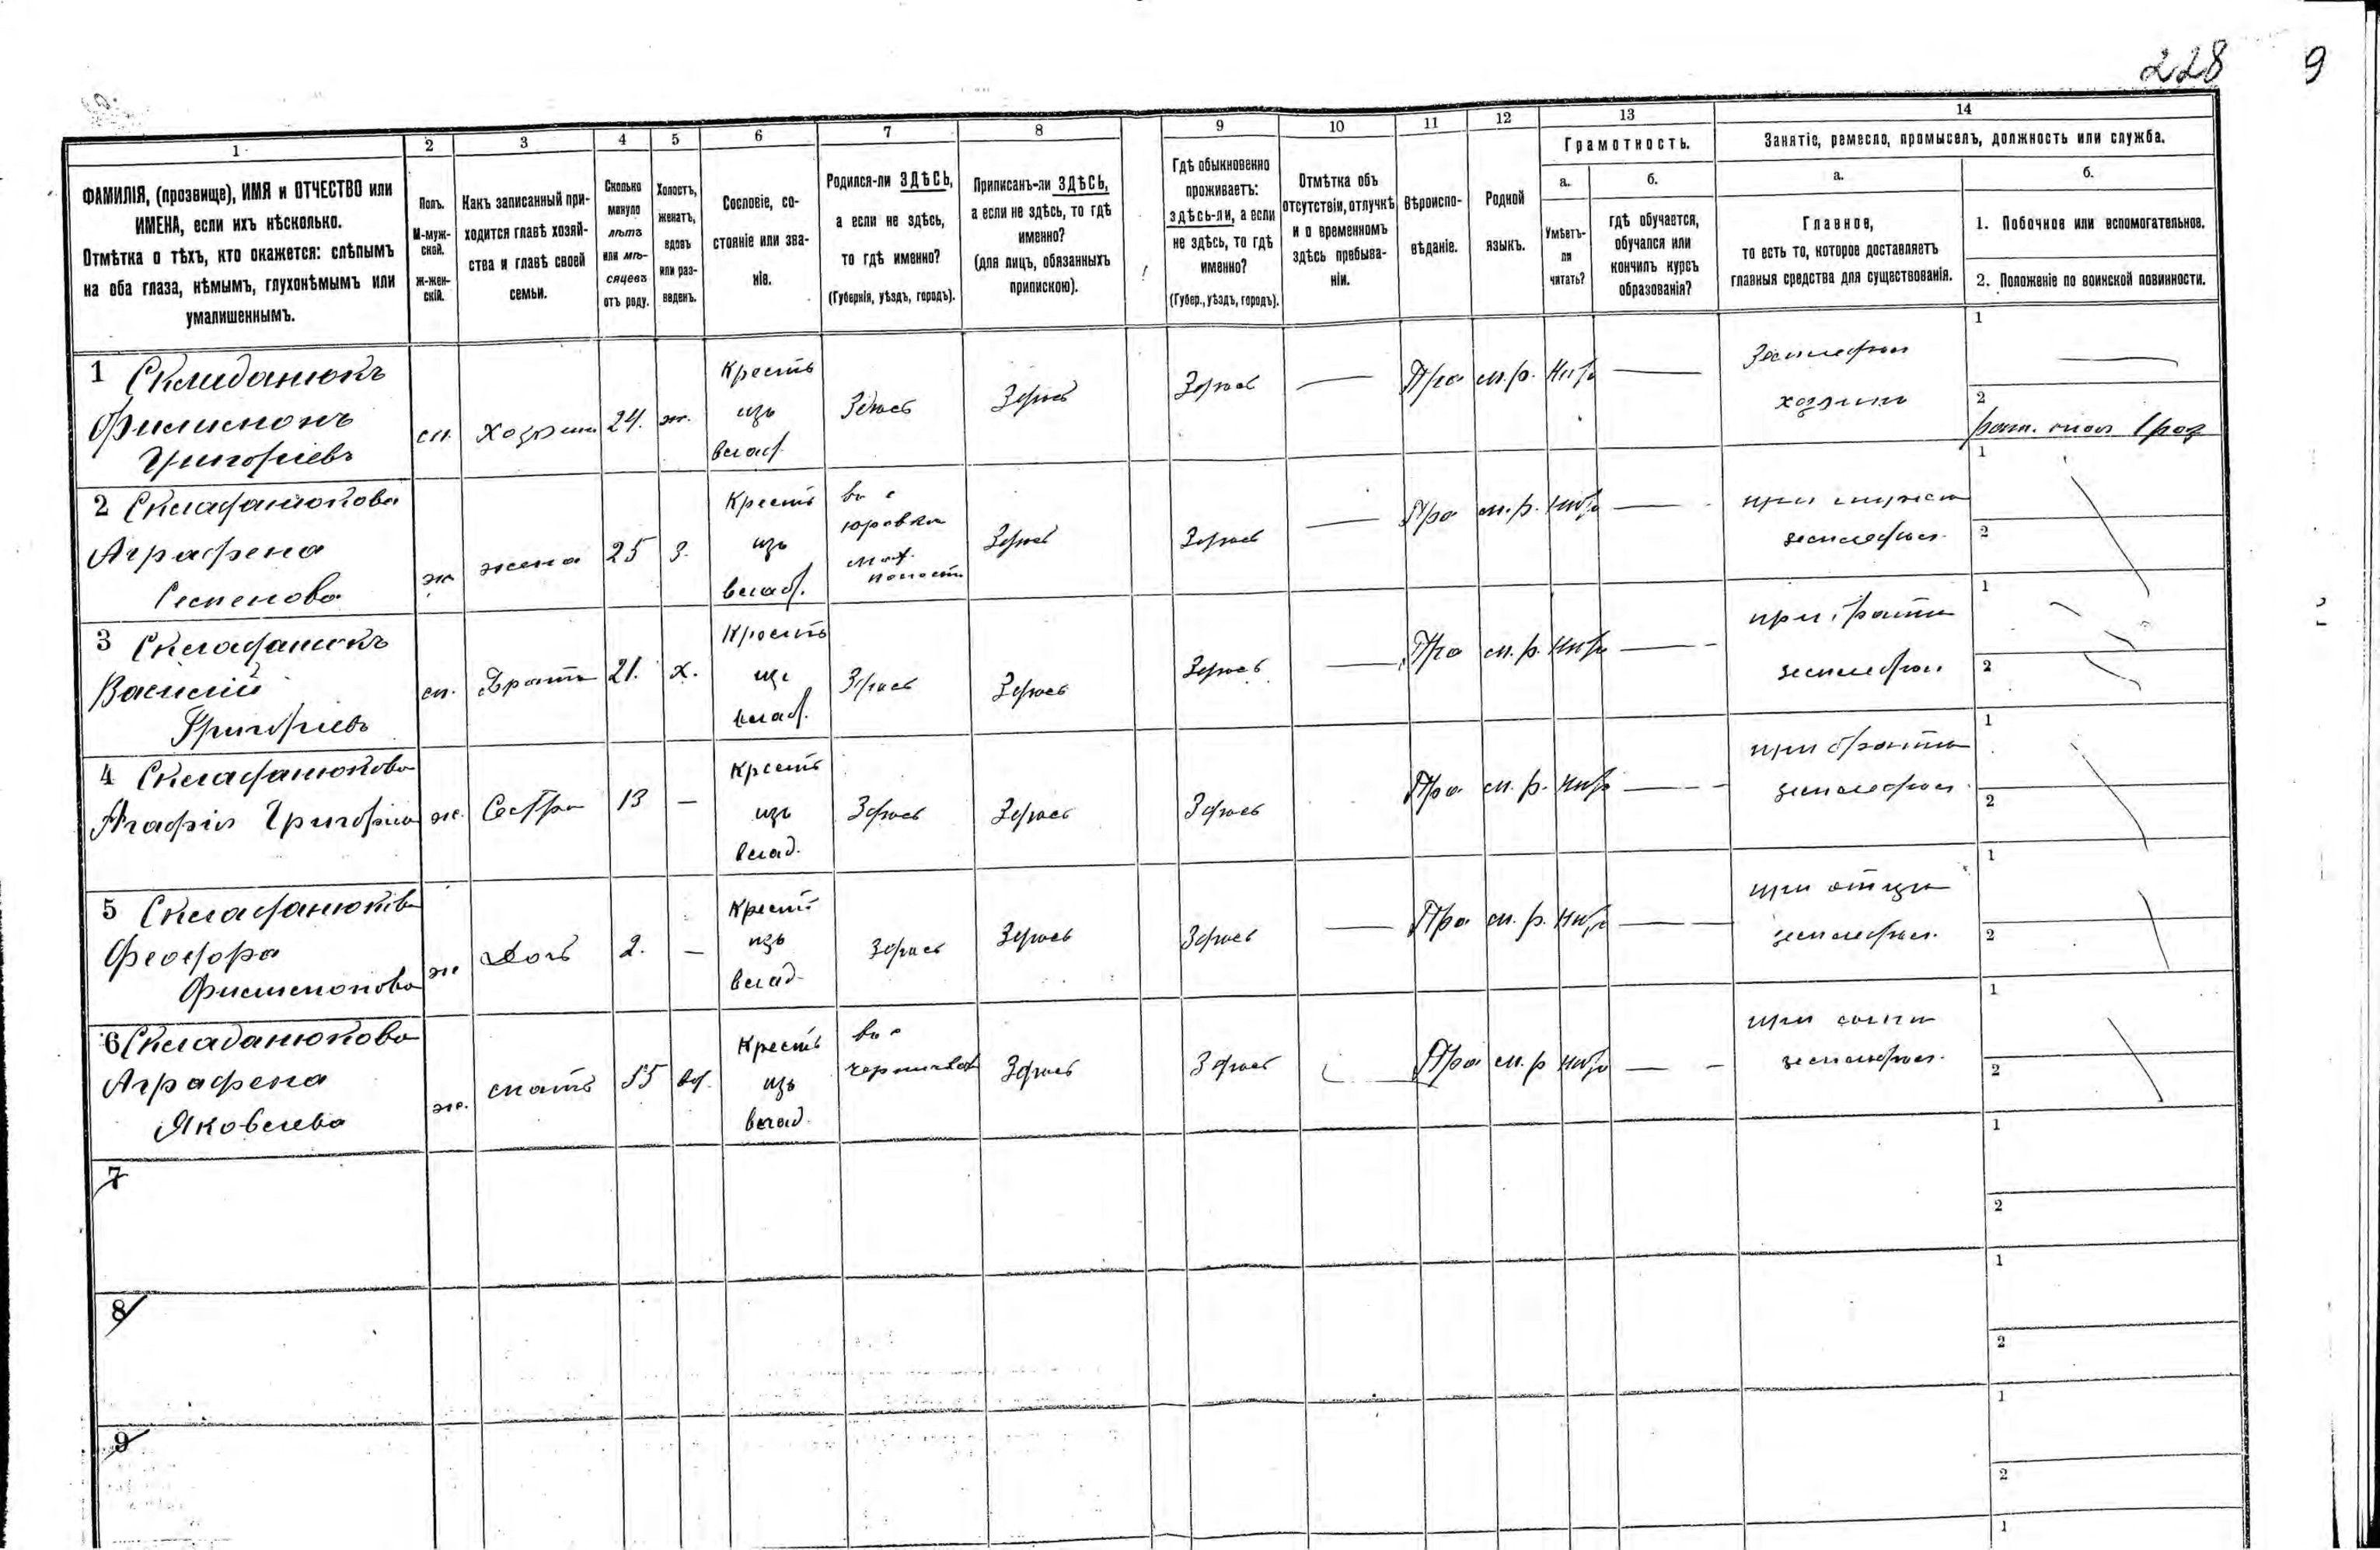 228 9
1 2 3 4 5 6 7 8 9 10 11 12 13 14
ФАМИЛІЯ, (прозвище), ИМЯ и ОТЧЕСТВО или
ИМЕНА, если ихъ нѣсколько.
Отмѣтка о тѣхъ, кто окажется: слѣпымъ
на оба глаза, нѣмымъ, глухонѣмымъ или
умалишеннымъ.
Полъ.
М-муж-
ской.
Ж-жен-
скій.
Какъ записанный при-
ходится главѣ хозяй-
ства и главѣ своей
семьи.
Сколько
минуло
лѣтъ
или мѣ-
сяцевъ
отъ роду.
Холостъ,
женатъ,
вдовъ
или раз-
веденъ.
Сословіе, со-
стояніе или зва-
ніе.
Родился-ли ЗДѢСЬ,
а если не здѣсь,
то гдѣ именно?
(Губернія, уѣздъ, городъ).
Приписанъ-ли ЗДѢСЬ,
а если не здѣсь, то гдѣ
именно?
(для лицъ, обязанныхъ
припискою).
Гдѣ обыкновенно
проживаетъ:
здѣсь-ли, а если
не здѣсь, то гдѣ
именно?
(Губер., уѣздъ, городъ).
Отмѣтка объ
отсутствіи, отлучкѣ
и о временномъ
здѣсь пребыва-
ніи.
Вѣроиспо-
вѣданіе.
Родной
языкъ.
Грамотность.
а.
Умѣетъ-
ли
читать?
б.
гдѣ обучается,
обучался или
кончилъ курсъ
образованія?
Занятіе, ремесло, промыселъ, должность или служба.
а.
Главное,
то есть то, которое доставляетъ
главныя средства для существованія.
б.
1. Побочное или вспомогательное.
2. Положеніе по воинской повинности.
1 Складанюкъ
Филимонъ
Григоріевъ
м. Хозяин 24. ж.
Крестъ
изъ
влад.
Здѣсь Здѣсь Здѣсь — Пра м.р. —
Земледѣл
хозяинъ
1 —
2
2 Складанюкова
Аграфена
Семенова
ж жена 25 З.
Крестъ
изъ
влад.
въ с
Юровка
Здѣсь Здѣсь — Пра м.р. —
земледѣл.
1
2
3 Складанюкъ
Василій
Григоріевъ
м. Братъ 21. х.
Крестъ
изъ
влад.
Здѣсь Здѣсь Здѣсь — Пра м.р. —
при братѣ
земледѣл
1
2
4 Складанюкова
Агафія Григоріева
ж. Сестра 13 —
Крестъ
изъ
влад.
Здѣсь Здѣсь Здѣсь Пра м.р. —
при братѣ
земледѣл.
1
2
5 Складанюкова
Феодора
Филимонова
ж Дочь 2. —
Крестъ
изъ
влад.
Здѣсь Здѣсь Здѣсь — Пра м.р. —
при отцѣ
земледѣл.
1
2
6 Складанюкова
Аграфена
Яковлева
ж. мать 55 вд.
Крестъ
изъ
влад.
въ с
Здѣсь Здѣсь — Пра м.р —
при сынѣ
земледѣл.
1
2
7
1
2
8
1
2
9
1
2
1